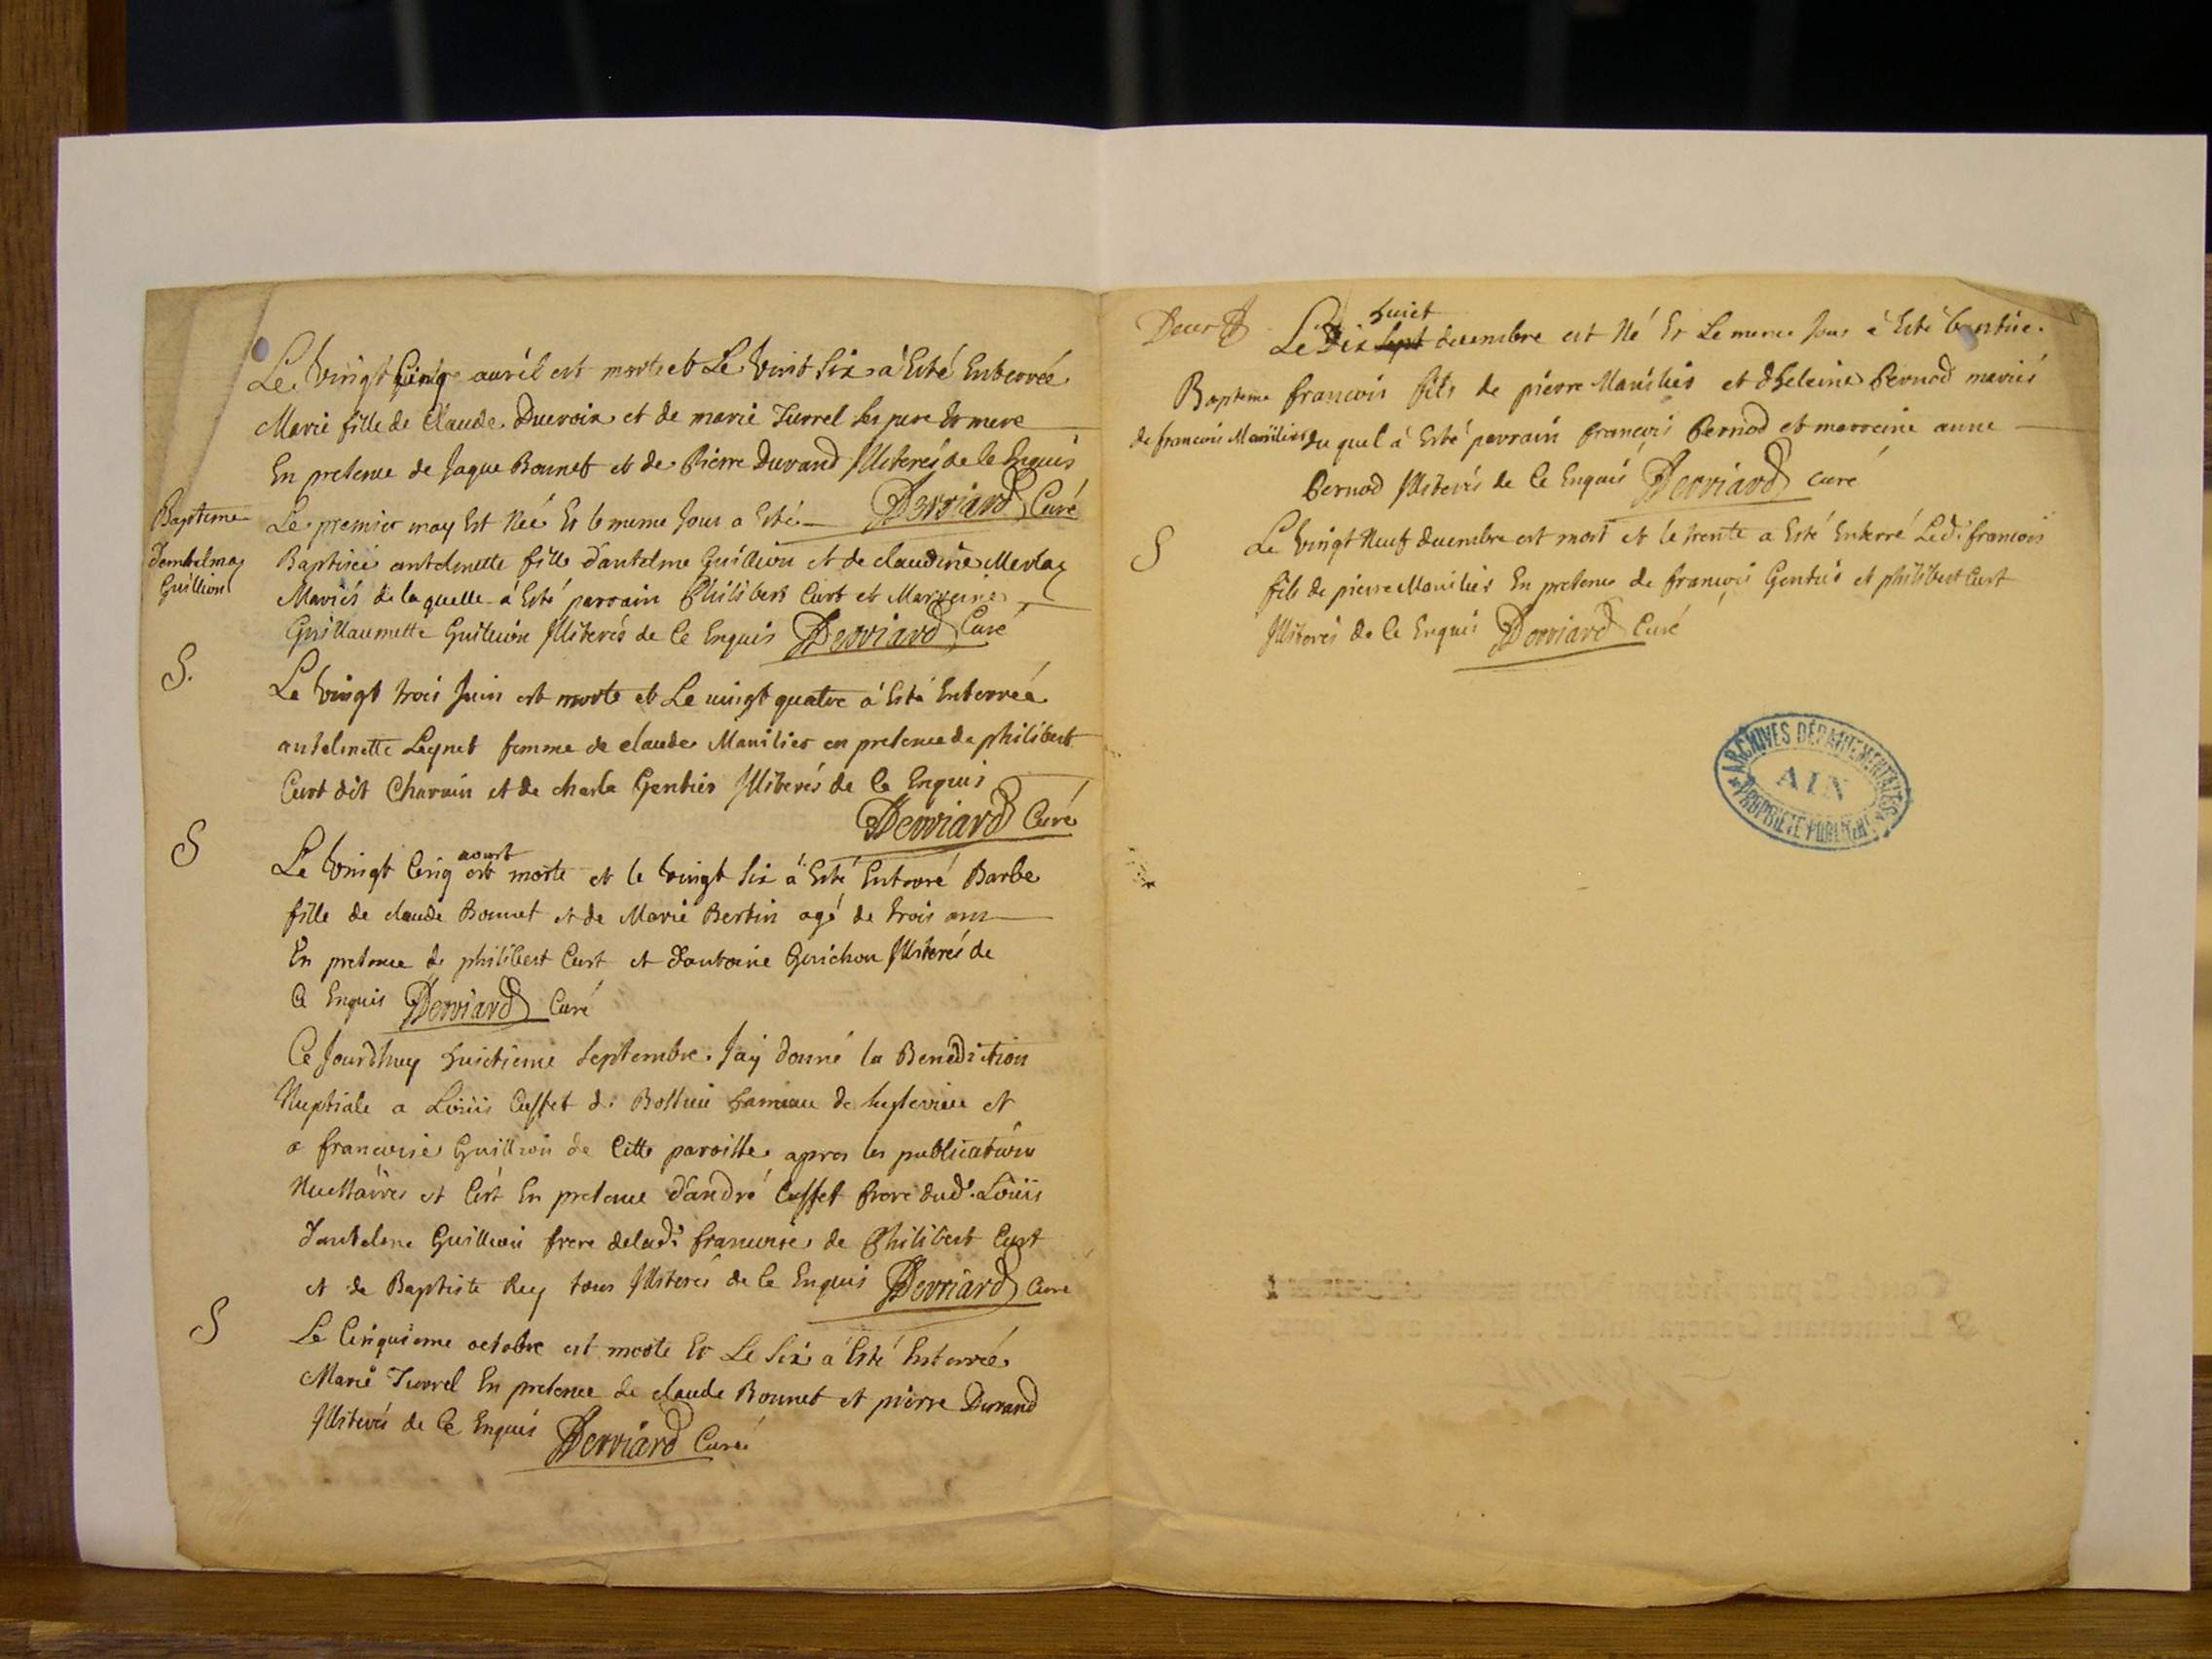 Le vingt cinq avril est morte et Le vint six a Esté Enterrée
Marie fille de Claude Ducroix et de marie Turrel ses pere et mere
En presence de Jaque Bonnet et de Pierre Durand Illiterés de ce Enquis
Derriard Curé
Bapteme
Dantelme
Guillion
Le premier may Est Née Et le meme Jour a Esté
Baptisée antelmette fille d'antelme Guillion et de claudine Merlay
Mariés de laquelle a Esté parrain Philibert Curt et Marreine
Guillaumette Guillion Illiterés de Ce Enquis Derriard Curé
S.
Le vingt trois Juin est morte et Le vingt quatre a Esté Enterrée
antelmette Leynet femme de claude Manilier en presence de philibert
Curt dit Charvin et de charle Gentier Illiterés de Ce Enquis
Derriard Curé
S
Le vingt Cinq aoust est morte et le vingt Six a Esté Enterré Barbe
fille de claude Bonnet et de Marie Bertin agé de trois ans
En presence de philibert Curt et d'antoine Guichon Illiterés de
Ce Enquis Derriard Curé
Ce Jourdhuy huictieme Septembre Jay donné la Benediction
Nuptiale a Loüis Cusset de hameau de et
a francoise Guillion de Cette paroisse apres les publications
et C'est En presence d'andré Cusset frere dud. Loüis
d'antelme Guillion frere delad. francoise de Philibert Curt
et de Baptiste Rey tous Illiterés de Ce Enquis Derriard Curé
S
Le Cinquieme octobre est morte Et Le Six a Esté Enterrée
Marie Turrel En presence de claude Bonnet et pierre Durand
Illiterés de Ce Enquis Derriard Curé
Deux
Le Dix sept huict decembre est Né Et Le meme Jour a Esté baptisé
Bapteme francois fils de pierre Manilier et d'heleine Bernod mariés
de francois Manilier du quel a Esté parrain francois Bernod et marreine anne
Bernod Illiterés de Ce Enquis Derriard curé
S
Le vingt Neuf decembre est mort et le trente a Esté Enterré Led. francois
fils de pierre Manilier En presence de francois Gentier et philibert Curt
Illiterés de Ce Enquis Derriard Curé
ARCHIVES DÉPARTEMENTALES
AIN
PROPRIÉTÉ PUBLIQUE